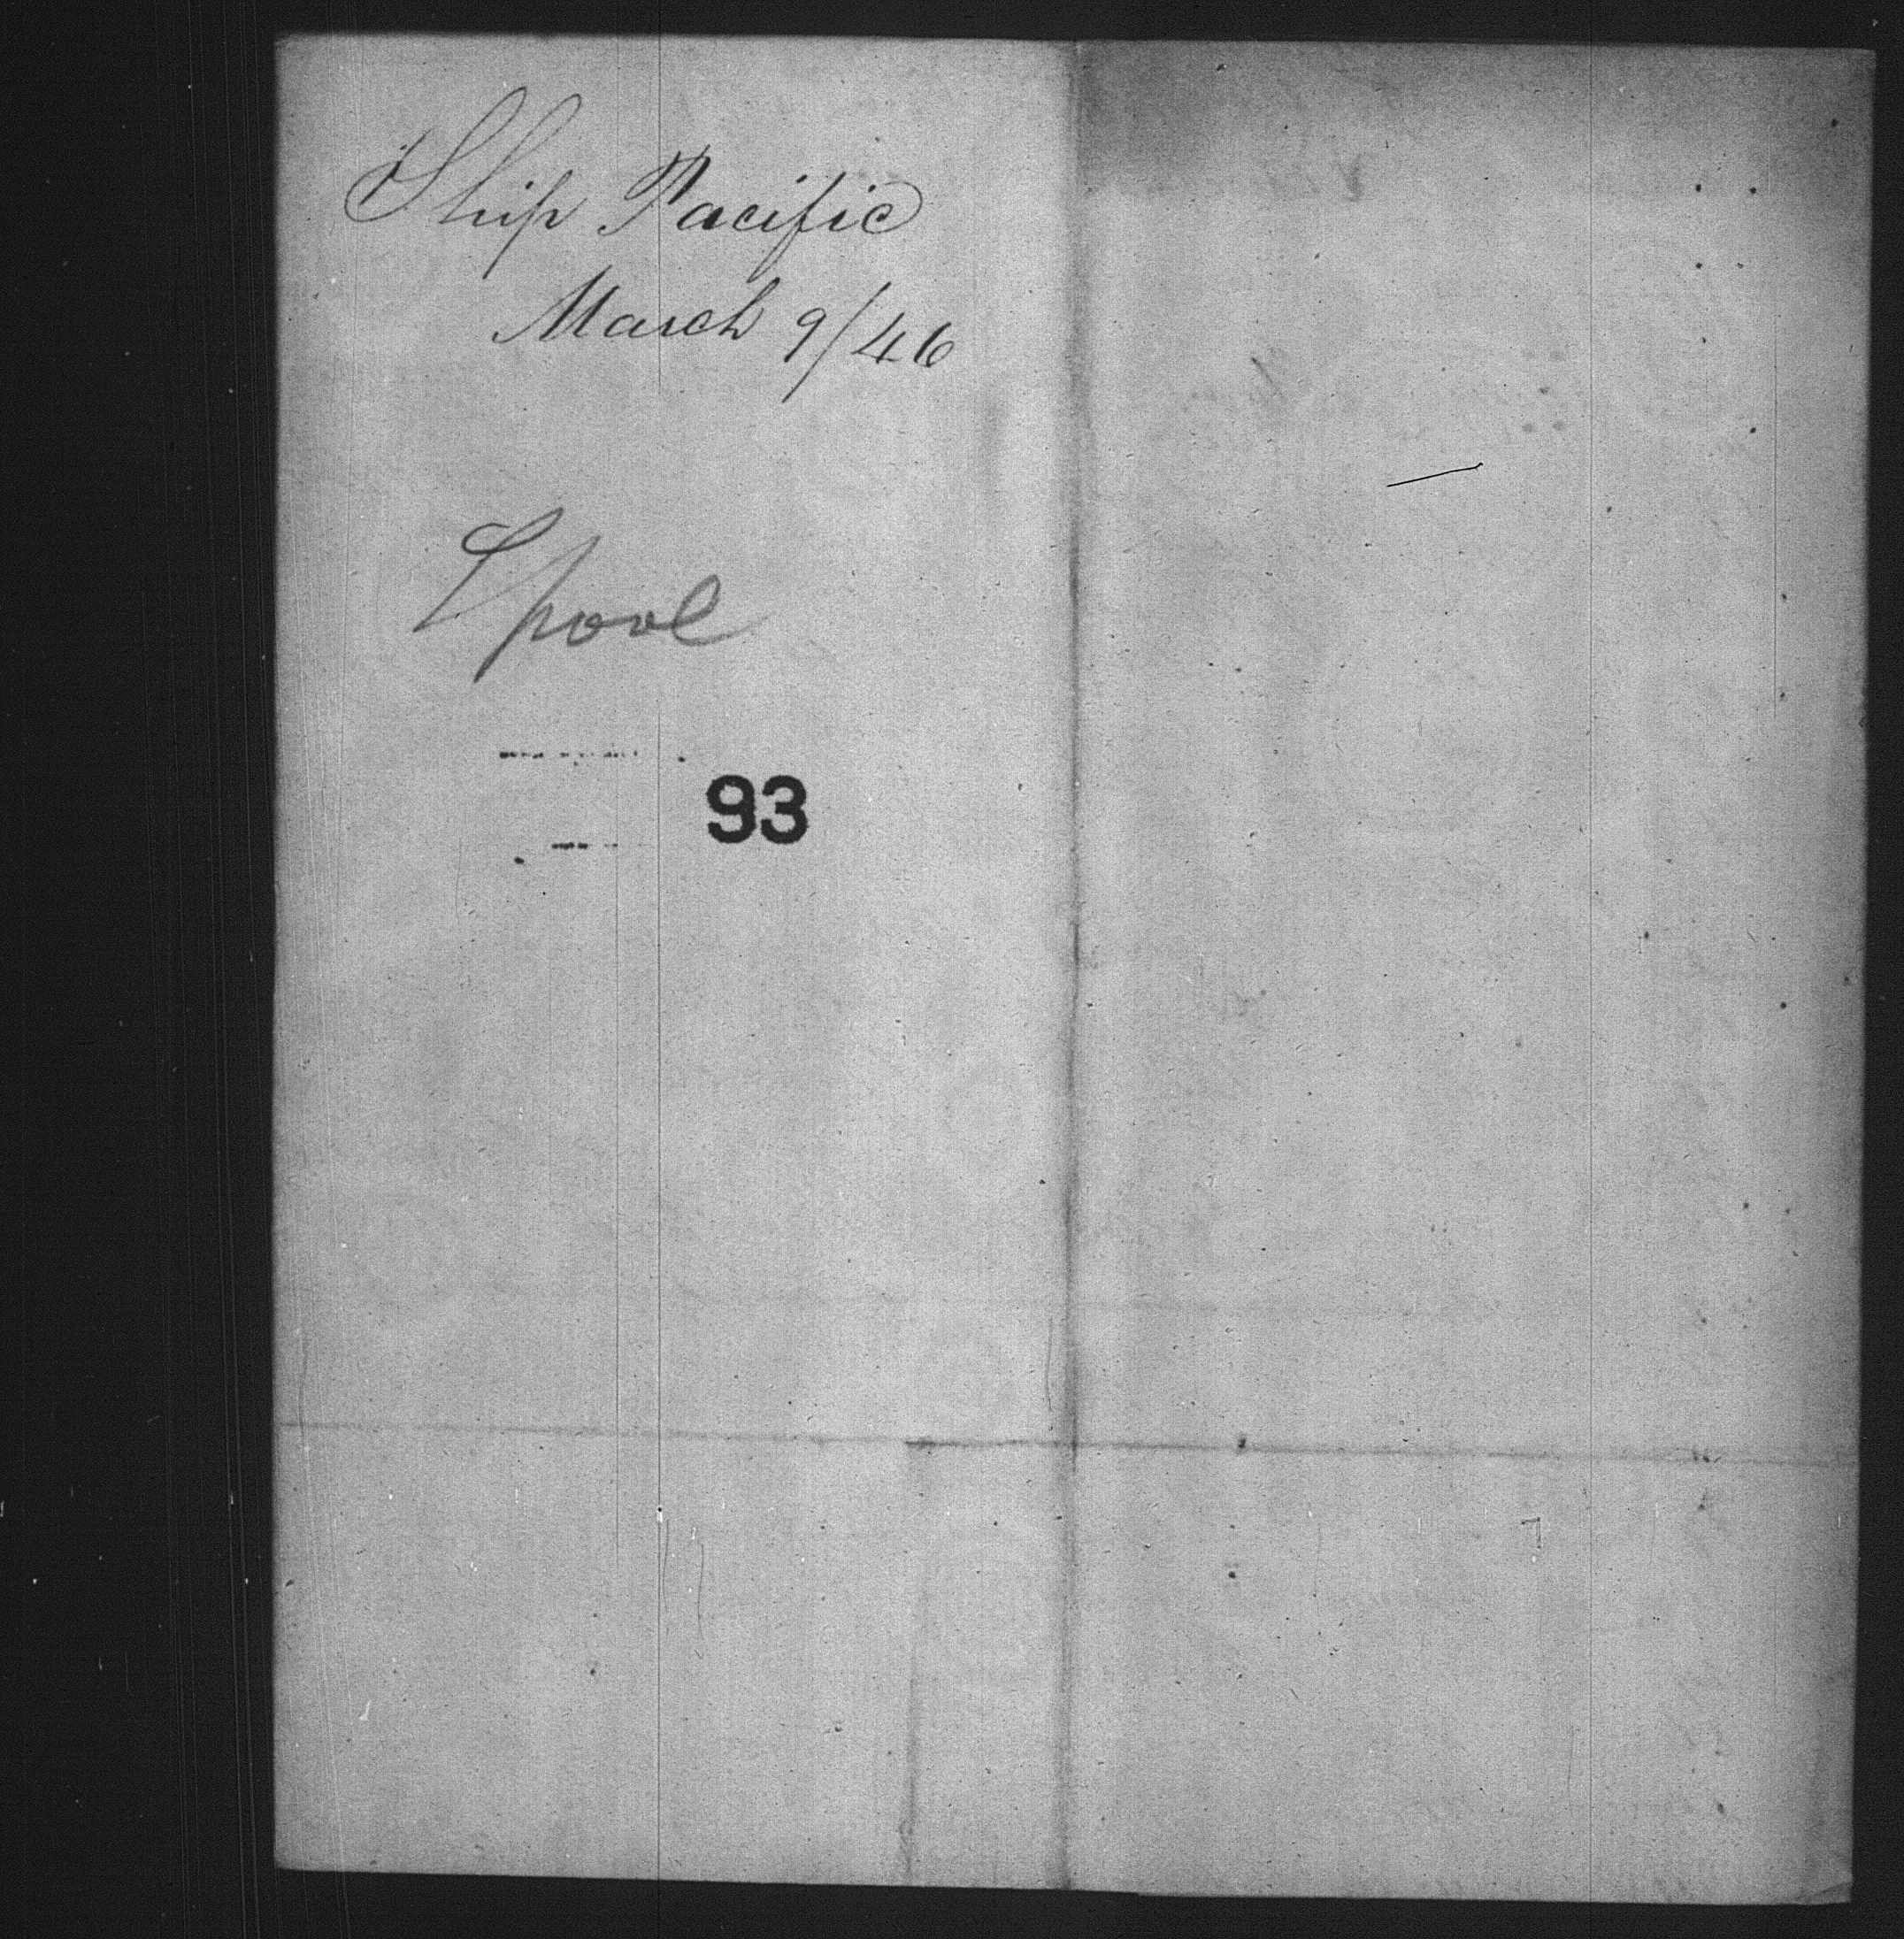 Ship Pacific
March 9/46
Lpool
93